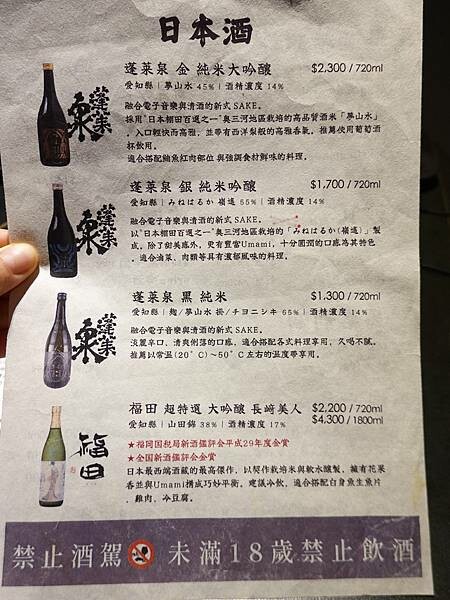 日本酒
蓬萊泉 金 純米大吟釀 $2,300 / 720ml
愛知縣 | 夢山水 45% | 酒精濃度 14%
融合電子音樂與清酒的新式 SAKE。
採用"日本棚田百選之一"奧三河地區栽培的高品質酒米「夢山水」
，入口輕快而高雅，並帶有西洋梨般的高雅香氣。推薦使用葡萄酒
杯飲用。
適合搭配鮪魚紅肉部位 與強調食材鮮味的料理。
蓬萊泉
蓬萊泉 銀 純米吟釀 $1,700 / 720ml
愛知縣 | みねはるか 嶺遙 55% | 酒精濃度 14%
融合電子音樂與清酒的新式 SAKE。
以"日本棚田百選之一"奧三河地區栽培的「みねはるか(嶺遙)」製
成，除了甜美感外，更有豐富Umami，十分圓潤的口感為其特色
，適合滷菜、肉類等具有濃郁風味的料理。
蓬萊泉
蓬萊泉 黑 純米 $1,300 / 720ml
愛知縣 | 麹/夢山水 掛/チヨニシキ 65% | 酒精濃度 14%
融合電子音樂與清酒的新式 SAKE。
淡麗辛口、清爽俐落的口感，適合搭配各式料理享用，久喝不膩。
推薦以常溫(20°C)~50°C 左右的溫度帶享用。
蓬萊泉
福田 超特選 大吟釀 長崎美人 $2,200 / 720ml
愛知縣 | 山田錦 38% | 酒精濃度 17% $4,300 / 1800ml
★福岡国税局新酒鑑評会平成29年度金賞
★全国新酒鑑評会金賞
日本最西端酒藏的最高傑作，以契作栽培米與軟水釀製，擁有花果
香並與Umami構成巧妙平衡。建議冷飲，適合搭配白身魚生魚片
、雞肉、冷豆腐。
福田
禁止酒駕 未滿18歲禁止飲酒